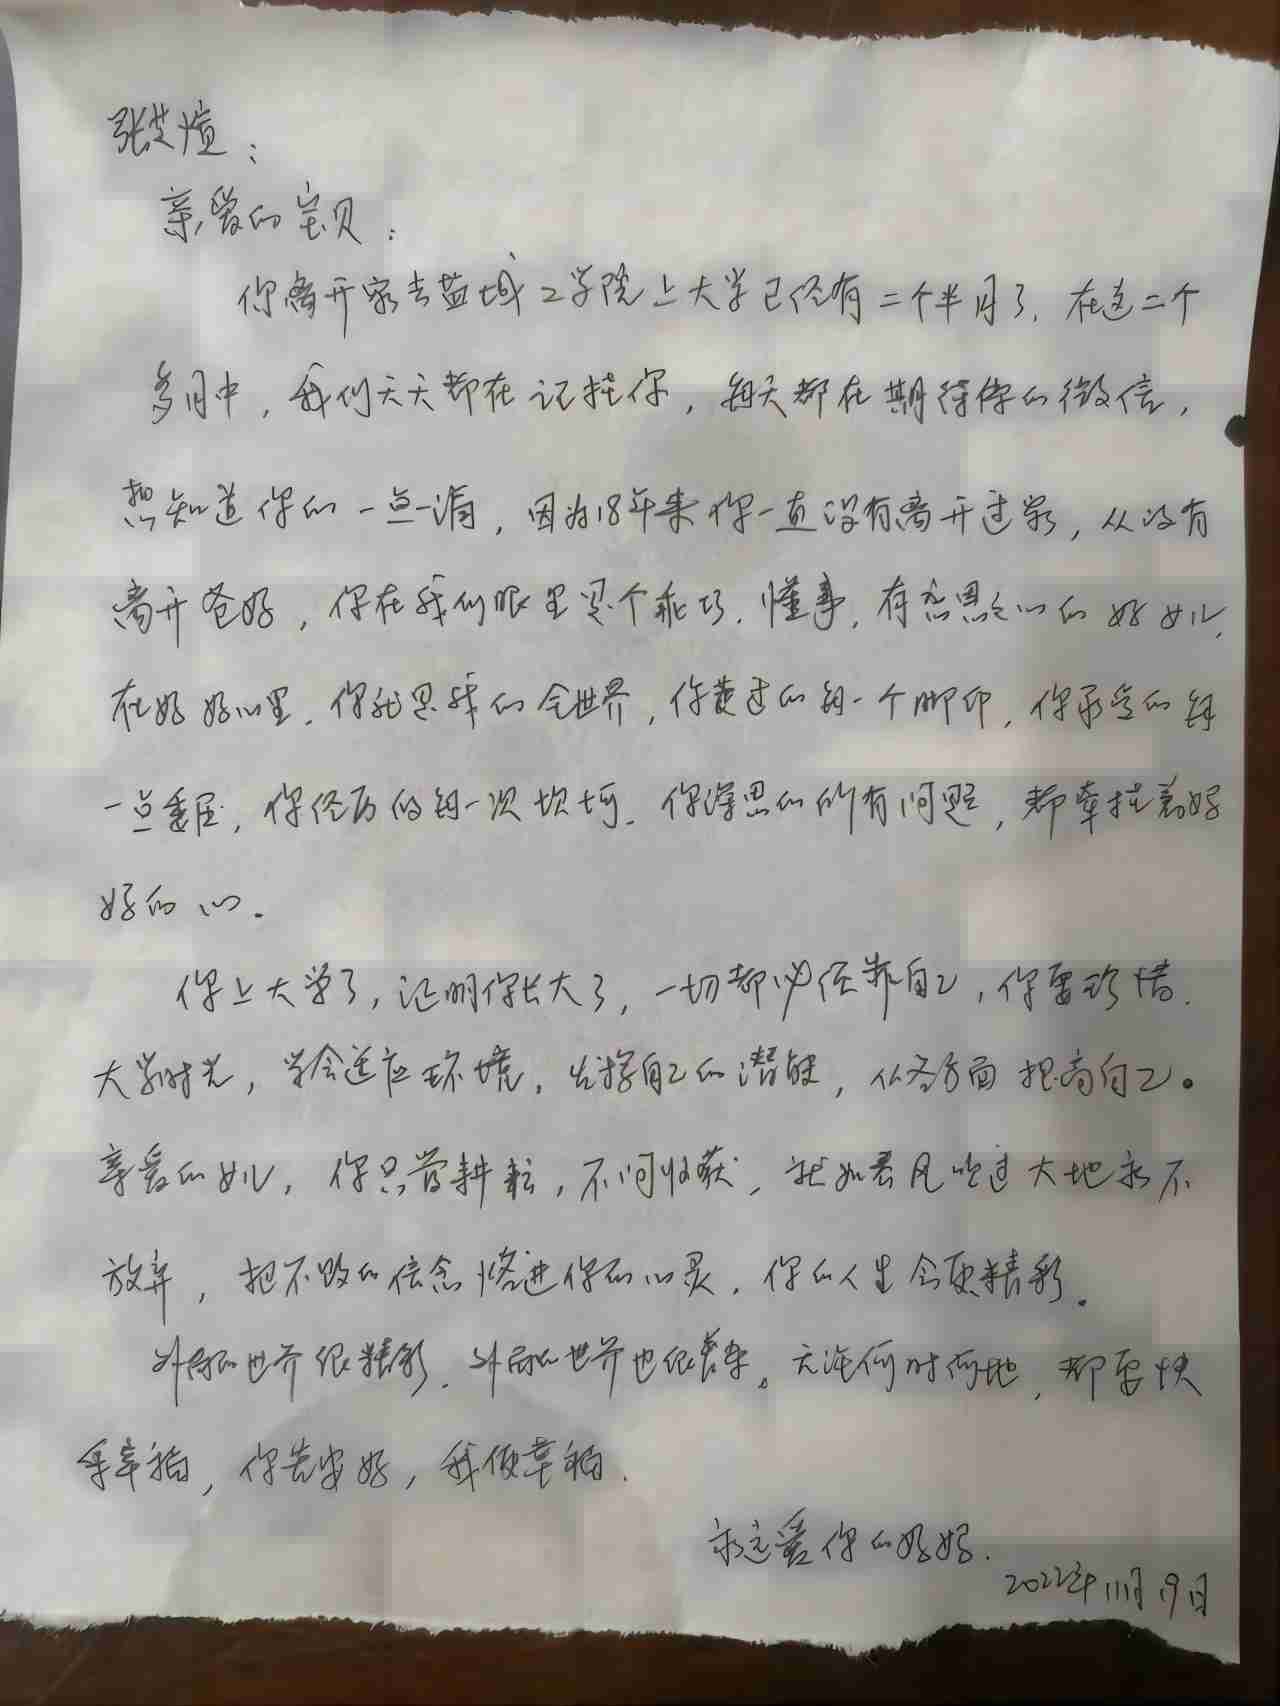 张艾煊：
亲爱的宝贝：
你离开家去盐城工学院上大学已经有二个半月了，在这二个
多月中，我们天天都在记挂你，每天都在期待你的微信，
想知道你的一点一滴，因为18年来你一直没有离开过家，从没有
离开爸妈，你在我们眼里是个乖巧、懂事，有意思心的好女儿，
在妈妈心里，你就是我的全世界，你走过的每一个脚印，你承受的每
一点委屈，你经历的每一次坎坷，你深思的所有问题，都牵挂着妈
妈的心。
你上大学了，证明你长大了，一切都必经靠自己，你要珍惜
大学时光，学会适应环境，发挥自己的潜能，从各方面提高自己。
亲爱的女儿，你只管耕耘，不问收获，就如春风吹过大地永不
放弃，把不败的信念烙进你的心灵，你的人生会更精彩。
外面的世界很精彩，外面的世界也很复杂。无论何时何地，都要快
乐幸福，你若安好，我便幸福。
永远爱你的妈妈.
2022年11月19日